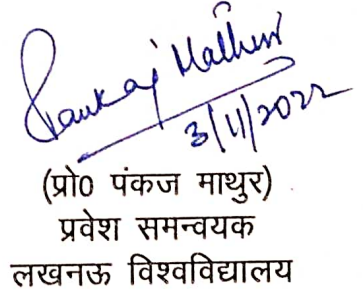 Pankaj Mathur
3/11/2022
(प्रो0 पंकज माथुर)
प्रवेश समन्वयक
लखनऊ विश्वविद्यालय